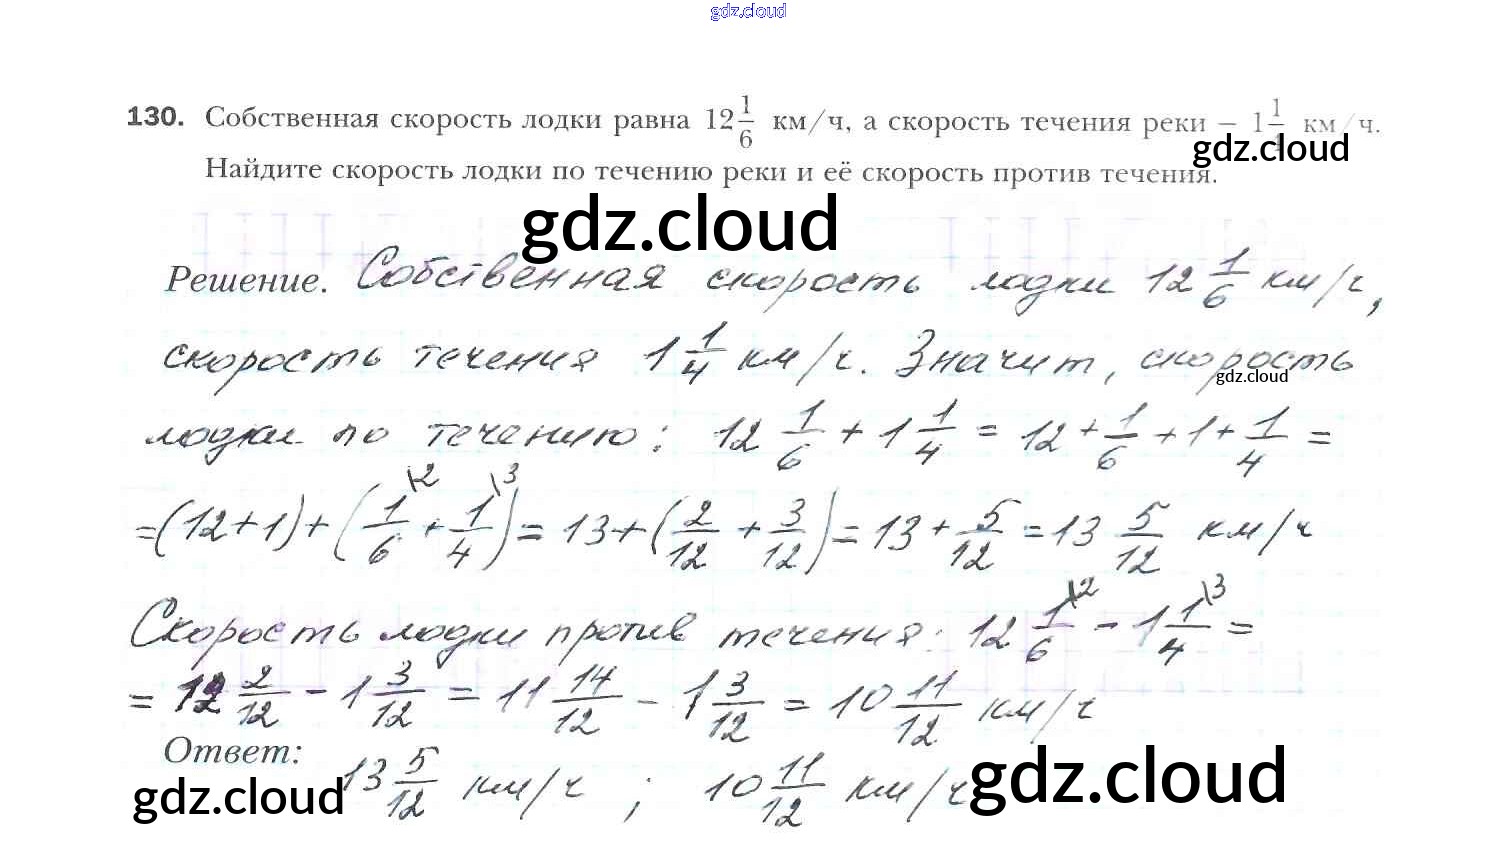 gdz.cloud
130. Собственная скорость лодки равна 12 1/6 км/ч, а скорость течения реки – 1 1/4 км/ч.
gdz.cloud
Найдите скорость лодки по течению реки и её скорость против течения.
gdz.cloud
Решение. Собственная скорость лодки 12 1/6 км/ч,
скорость течения 1 1/4 км/ч. Значит, скорость
gdz.cloud
лодки по течению: 12 1/6 + 1 1/4 = 12 + 1/6 + 1 + 1/4 =
=(12+1)+(1/6\2 + 1/4\3) = 13+(2/12 + 3/12) = 13 + 5/12 = 13 5/12 км/ч
Скорость лодки против течения: 12 1/6\2 - 1 1/4\3 =
= 12 2/12 - 1 3/12 = 11 14/12 - 1 3/12 = 10 11/12 км/ч
Ответ:
13 5/12 км/ч ; 10 11/12 км/ч
gdz.cloud
gdz.cloud